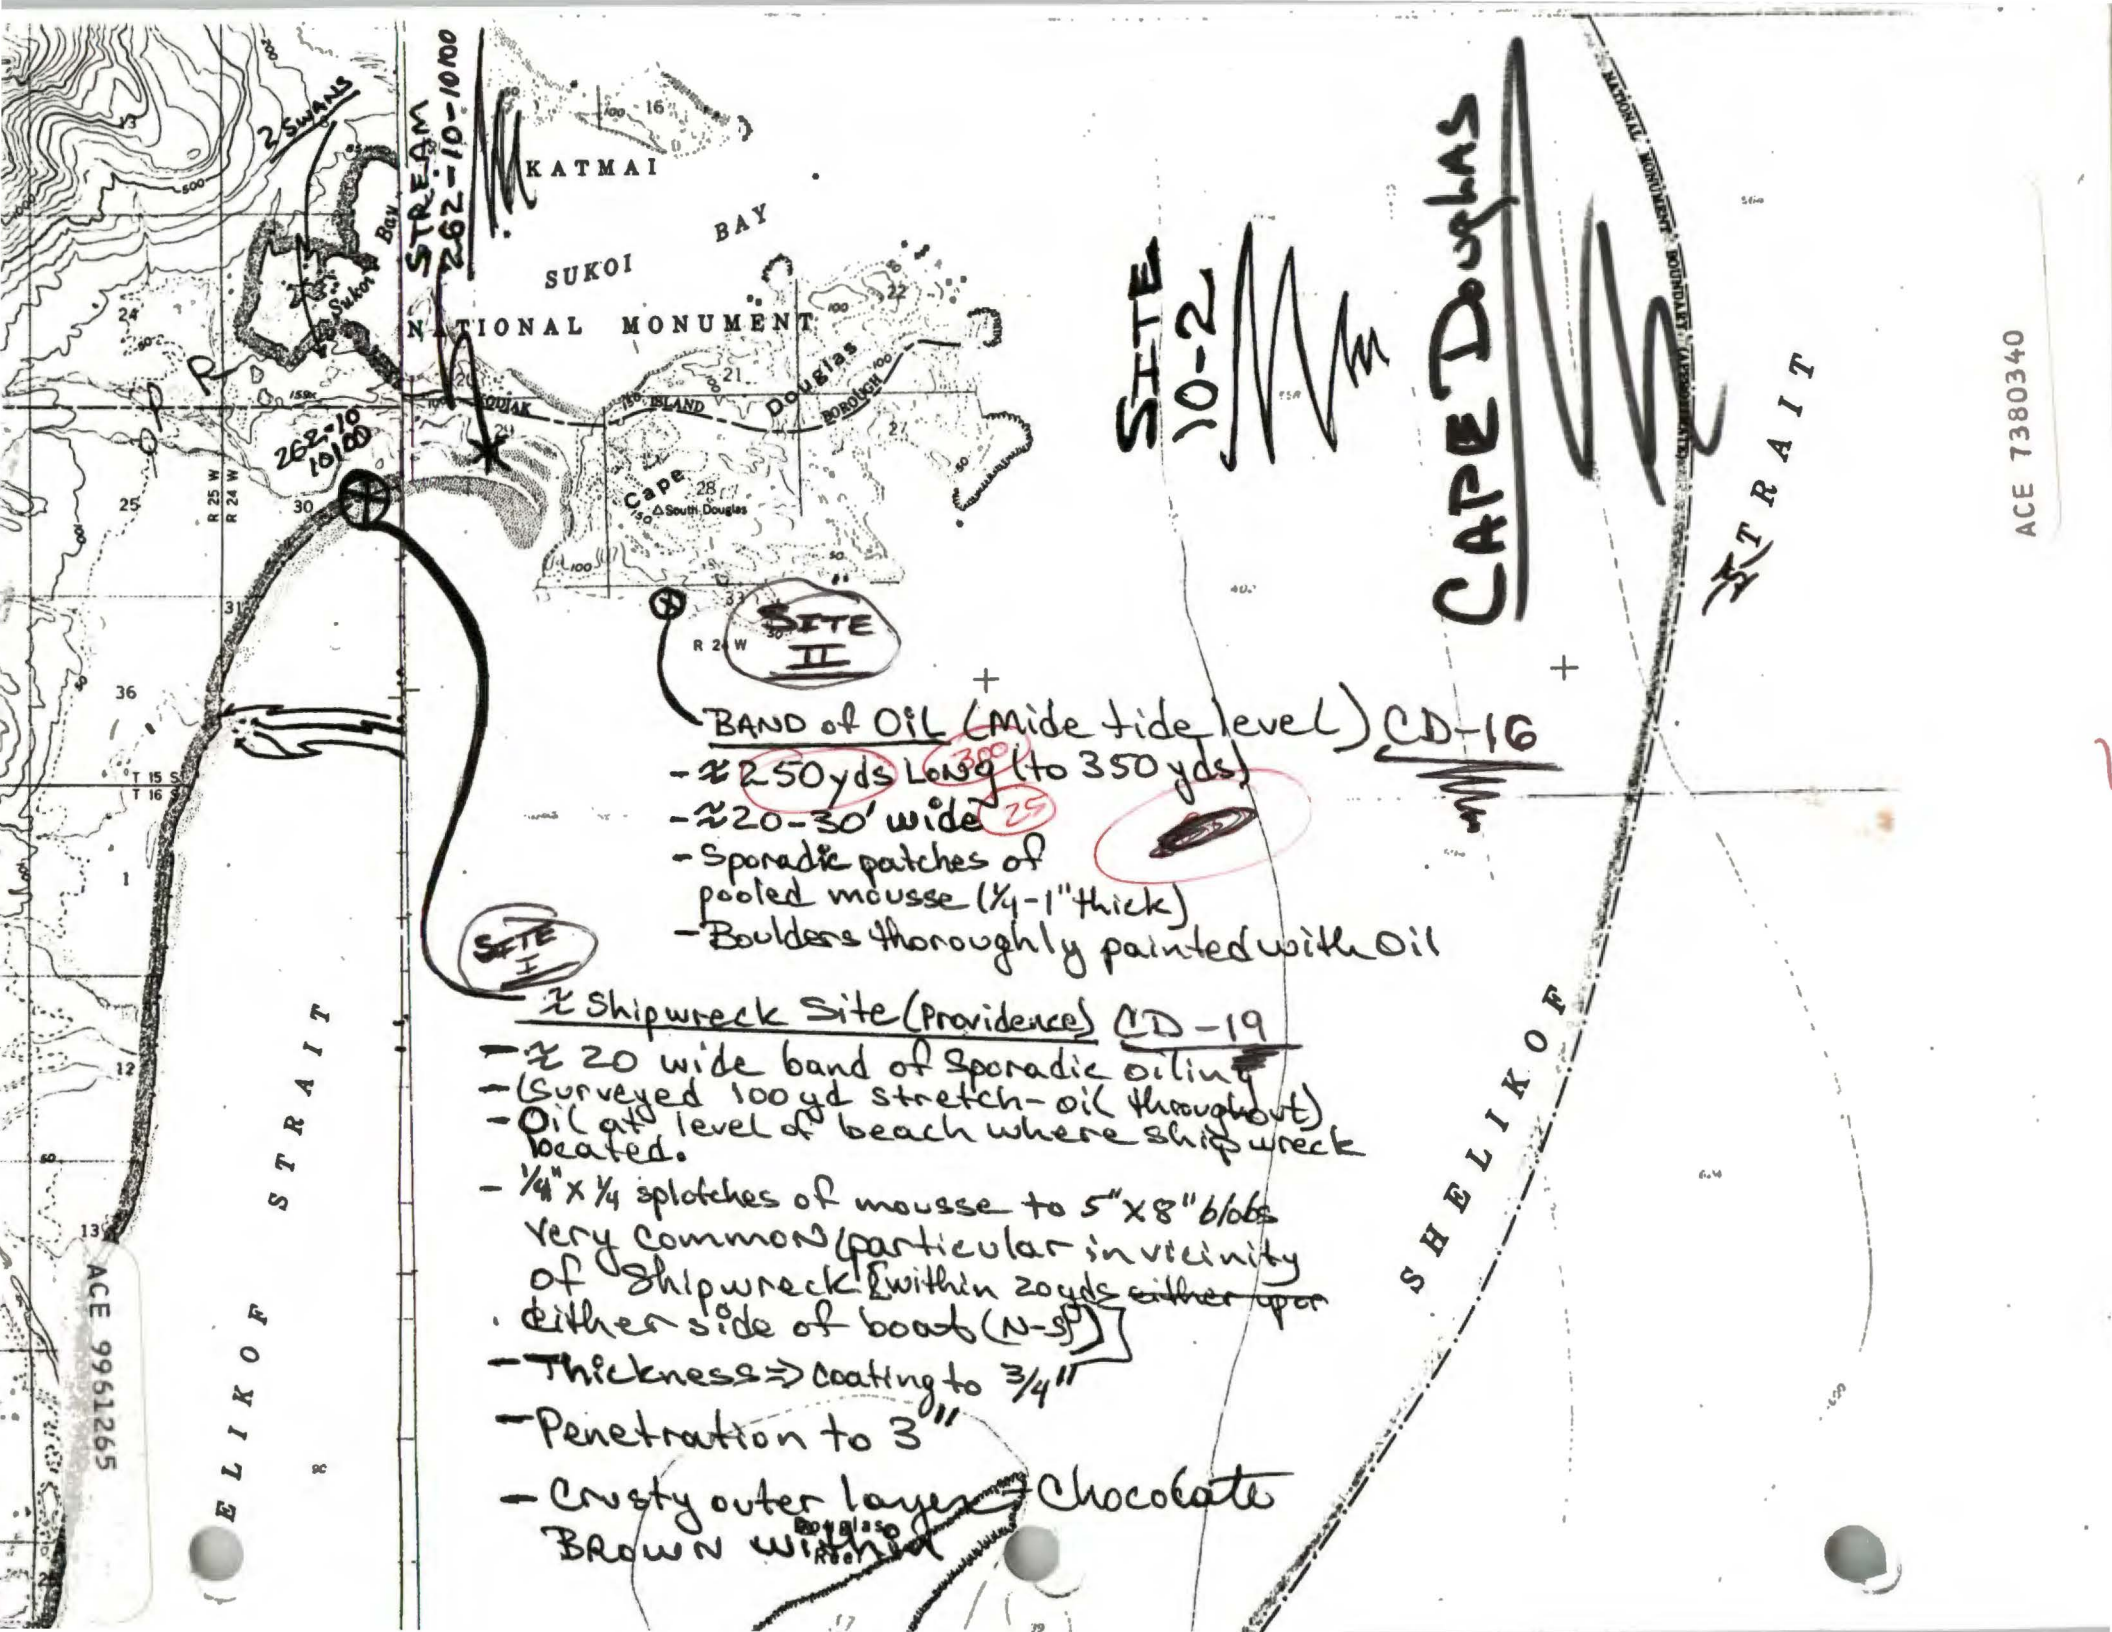 2 SWANS
STREAM
262-10-10100
KATMAI
16
100
50
13
500
200
Bay
Sukoi
SUKOI BAY
NATIONAL MONUMENT
24
50
22
100
21
Douglas
KODIAK ISLAND BOROUGH
100
27
50
29
262-10
10100
25
R 25 W
R 24 W
30
Cape
150
28
South Douglas
100
50
31
33
R 24 W
SITE
10-2
CAPE Douglas
NATIONAL MONUMENT BOUNDARY
STRAIT
ACE 7380340
SITE
II
36
T 15 S
T 16 S
BAND of OiL (Mide tide level) CD-16
300
- ≈ 250 yds LONg (to 350 yds)
- ≈ 20-30' wide 25
- Sporadic patches of
pooled mousse (1/4-1" thick)
- Boulders thoroughly painted with Oil
1
SITE
I
≈ Shipwreck Site (Providence) CD-19
- ≈ 20 wide band of Sporadic oiling
- (Surveyed 100 yd stretch-oil throughout)
- Oil at level of beach where shipwreck
located.
- 1/4" x 1/4 splotches of mousse to 5" x 8" blobs
very common (particular in vicinity
of Shipwreck [within 20 yds either upor
either side of boat (N-S)]
- Thickness ⇒ coating to 3/4"
- Penetration to 3"
- Crusty outer layer - Chocolate
BROWN within
Douglas
Reef
12
50
13
ACE 9961265
ELIKOF STRAIT
SHELIKOF
17